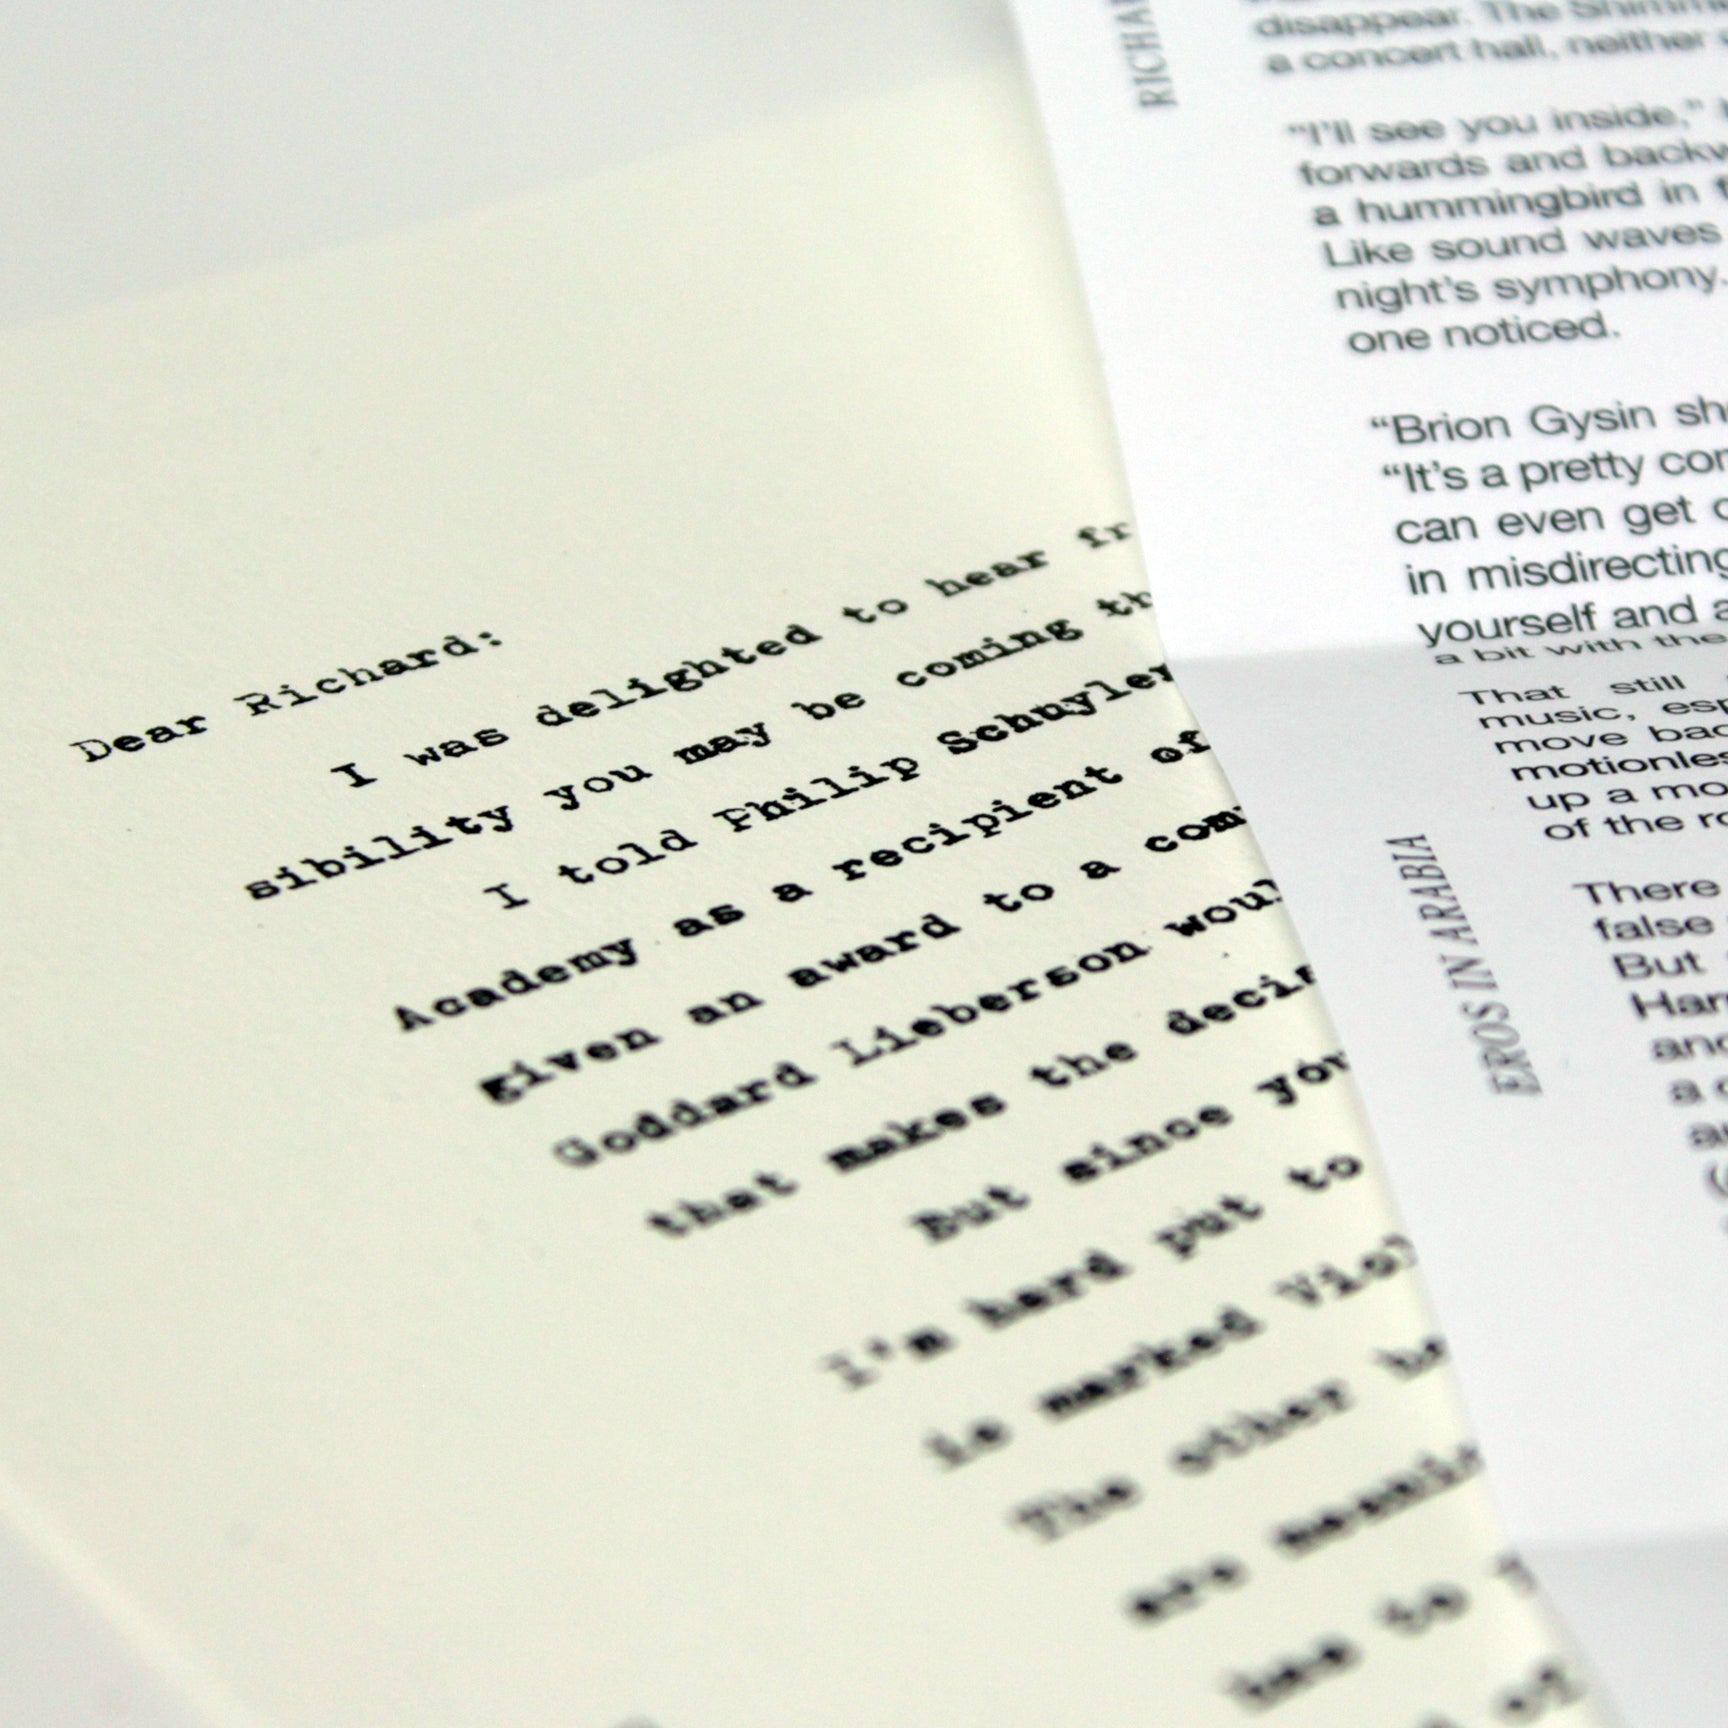 Dear Richard:
I was delighted to hear fr
sibility you may be coming th
I told Philip Schuyler
Academy as a recipient of
given an award to a com
Goddard Lieberson woul
that makes the decis
But since you
I'm hard put to
is marked Viol
The other be
are meanin
has to
of
RICHAR
disappear. The Shimm
a concert hall, neither
"I'll see you inside,"
forwards and backw
a hummingbird in f
Like sound waves
night's symphony.
one noticed.
"Brion Gysin sh
"It's a pretty com
can even get o
in misdirecting
yourself and a
a bit with the
That still
music, esp
move bac
motionles
up a mo
of the ro
EROS IN ARABIA
There
false
But
Har
and
a